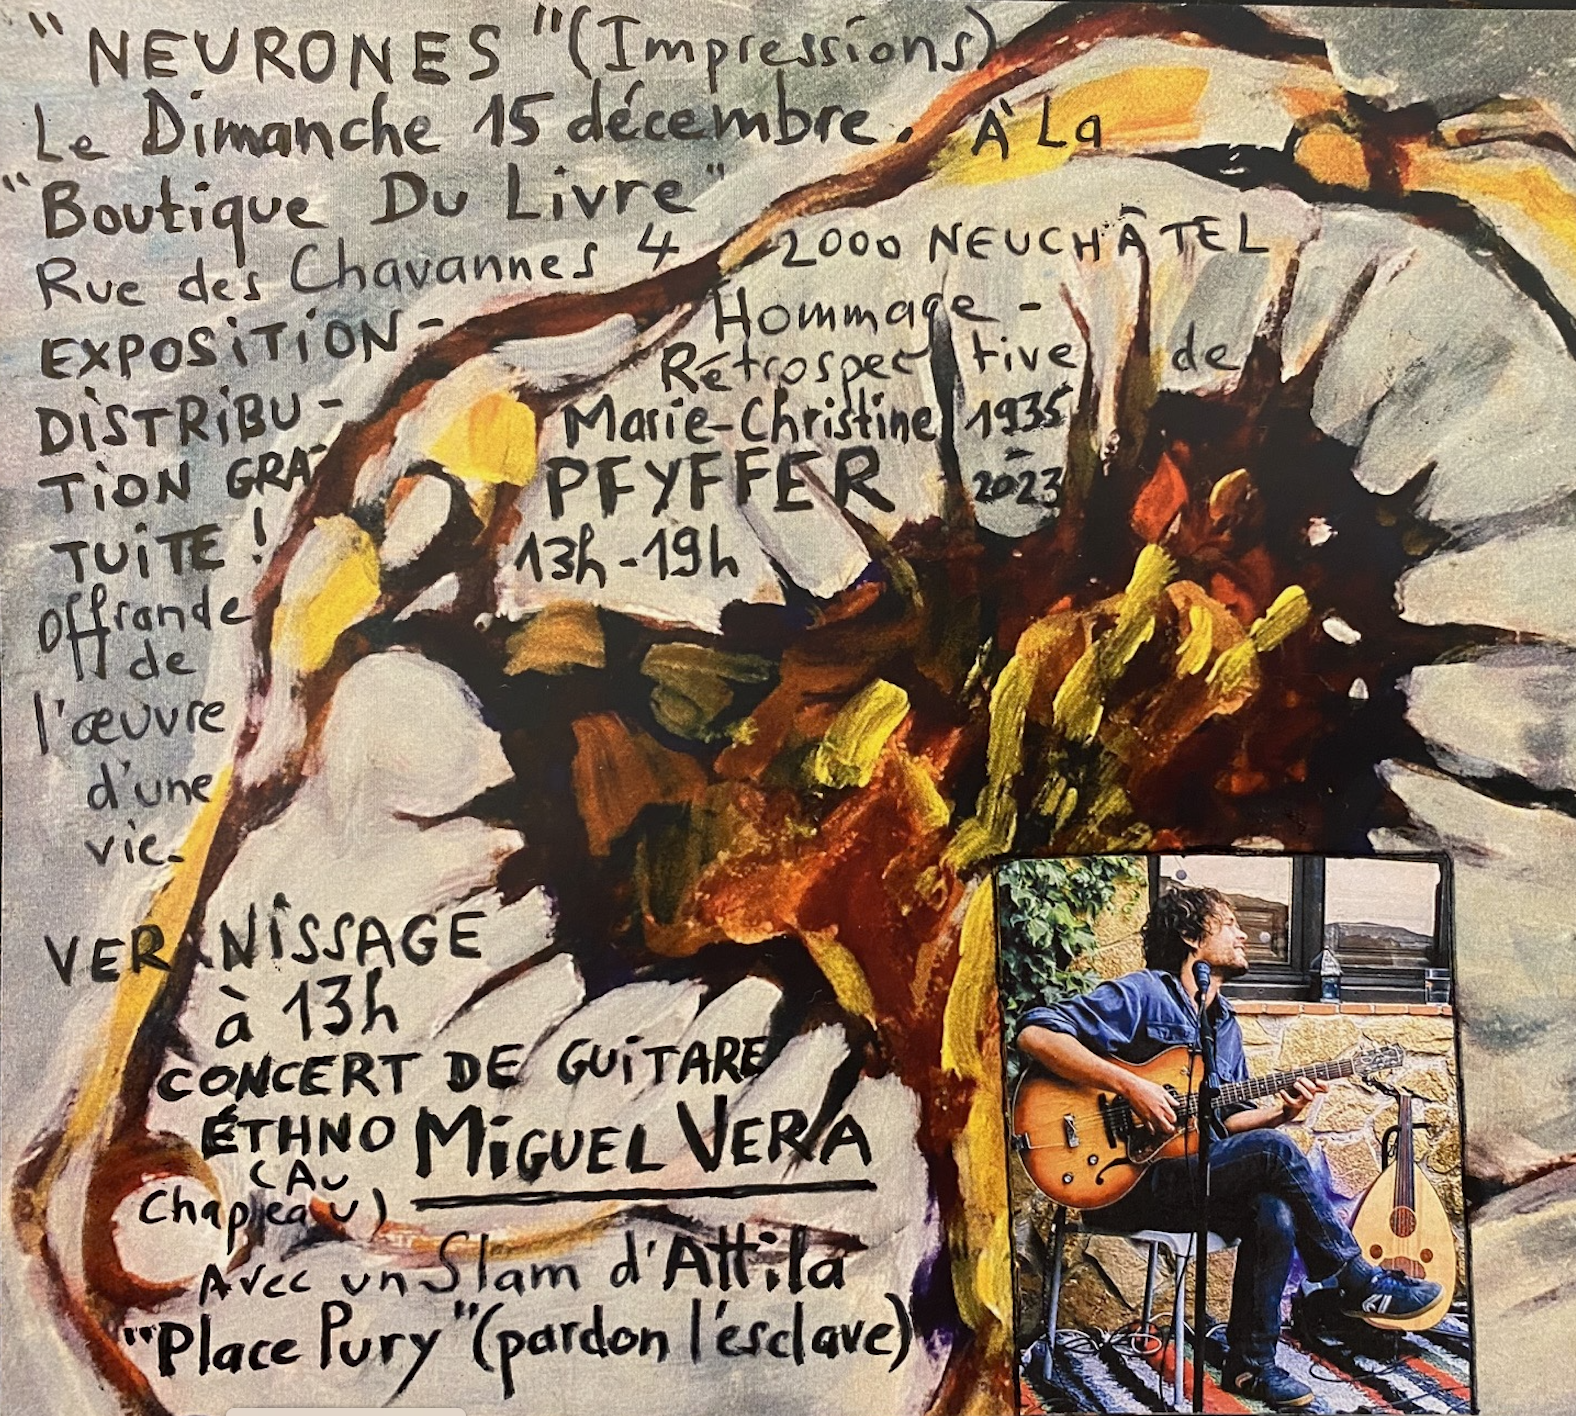 "NEURONES" (Impressions)
Le Dimanche 15 décembre. À La
"Boutique Du Livre"
Rue des Chavannes 4 2000 NEUCHÂTEL
EXPOSITION-
DISTRIBU-
TION GRA-
TUITE !
Offrande
de
l'œuvre
d'une
vie.
Hommage -
Rétrospective de
Marie-Christine 1935
PFYFFER - 2023
13h-19h
VERNISSAGE
à 13h
CONCERT DE GUITARE
ÉTHNO MIGUEL VERA
(AU
Chapeau)
Avec un Slam d'Attila
"Place Pury" (pardon l'esclave)